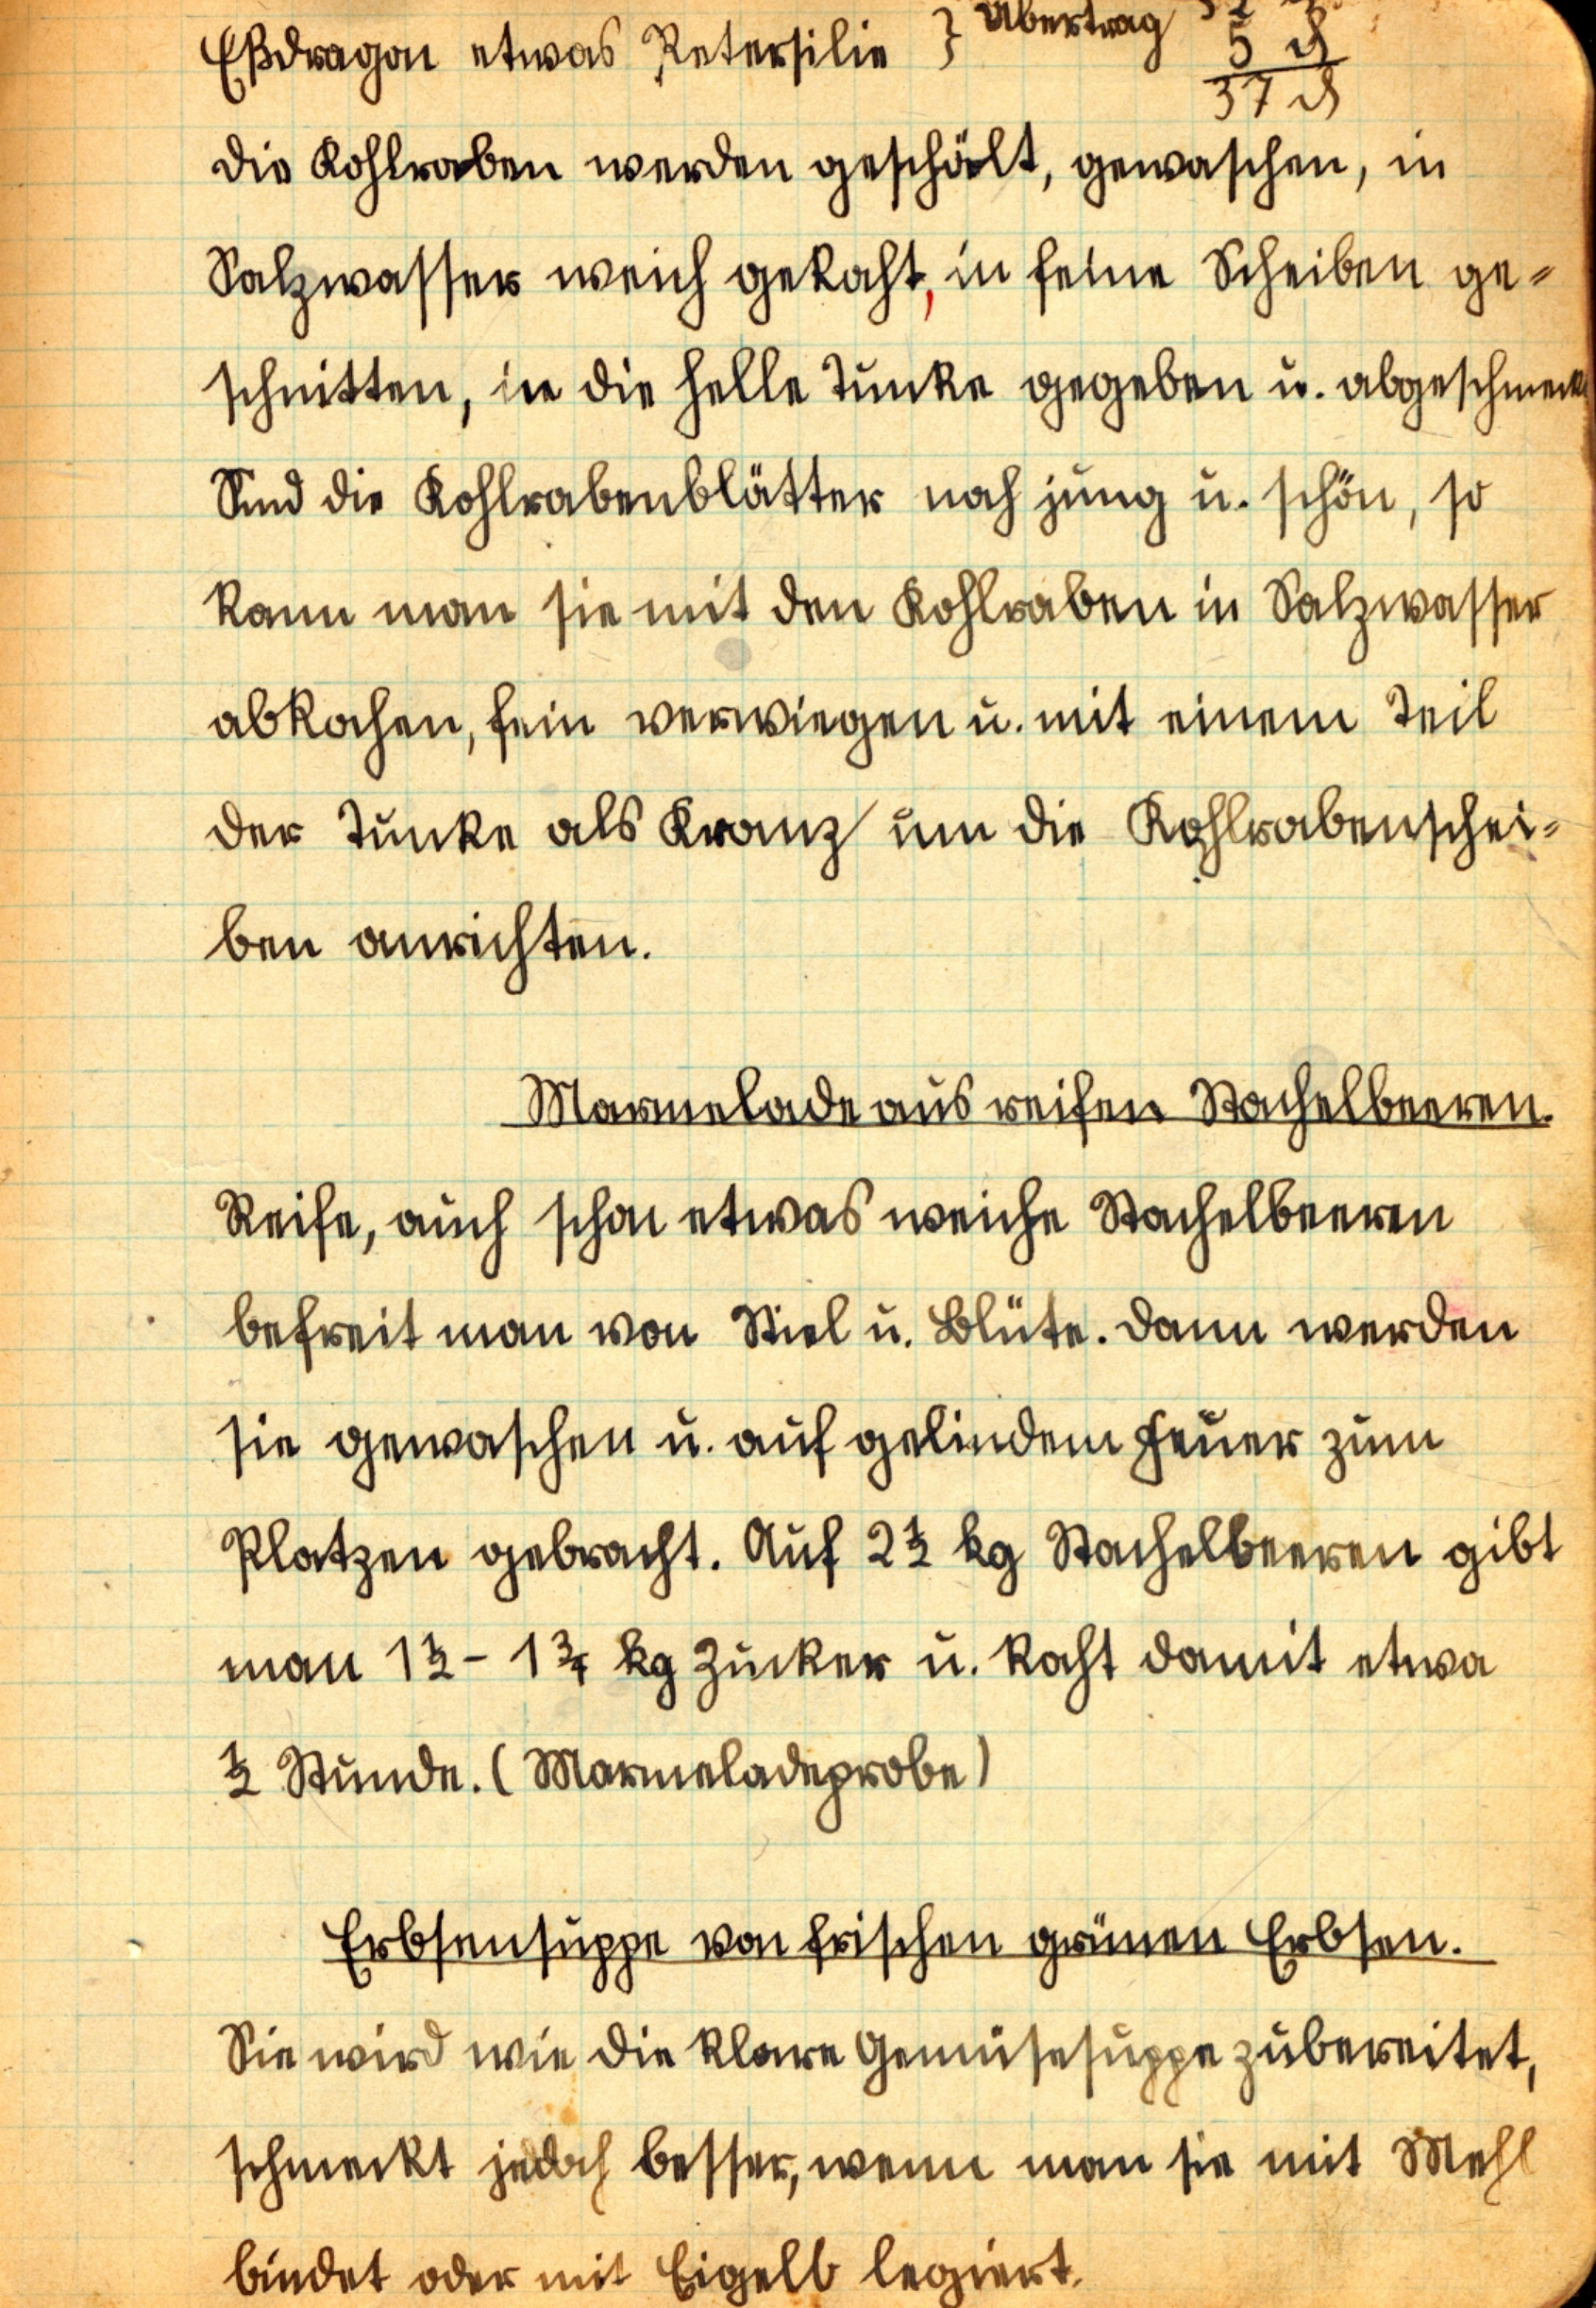 Eßdragon etwas Petersilie } Übertrag
5 ₰
37 ₰
die Kohlraben werden geschält, gewaschen, in
Salzwasser weich gekocht, in feine Scheiben ge=
schnitten, in die helle Tunke gegeben u. abgeschmeckt
Sind die Kohlrabenblätter noch jung u. schön, so
kann man sie mit den Kohlraben in Salzwasser
abkochen, fein verwiegen u. mit einem Teil
der Tunke als Kranz um die Kohlrabenschei=
ben anrichten.
Marmelade aus reifen Stachelbeeren.
Reife, auch schon etwas weiche Stachelbeeren
befreit man von Stiel u. Blüte. Dann werden
sie gewaschen u. auf gelindem Feuer zum
Platzen gebracht. Auf 2½ kg Stachelbeeren gibt
man 1½ - 1¾ kg Zucker u. kocht damit etwa
½ Stunde. (Marmeladeprobe)
Erbsensuppe von frischen grünen Erbsen.
Sie wird wie die klare Gemüsesuppe zubereitet,
schmeckt jedoch besser, wenn man sie mit Mehl
bindet oder mit Eigelb legiert.